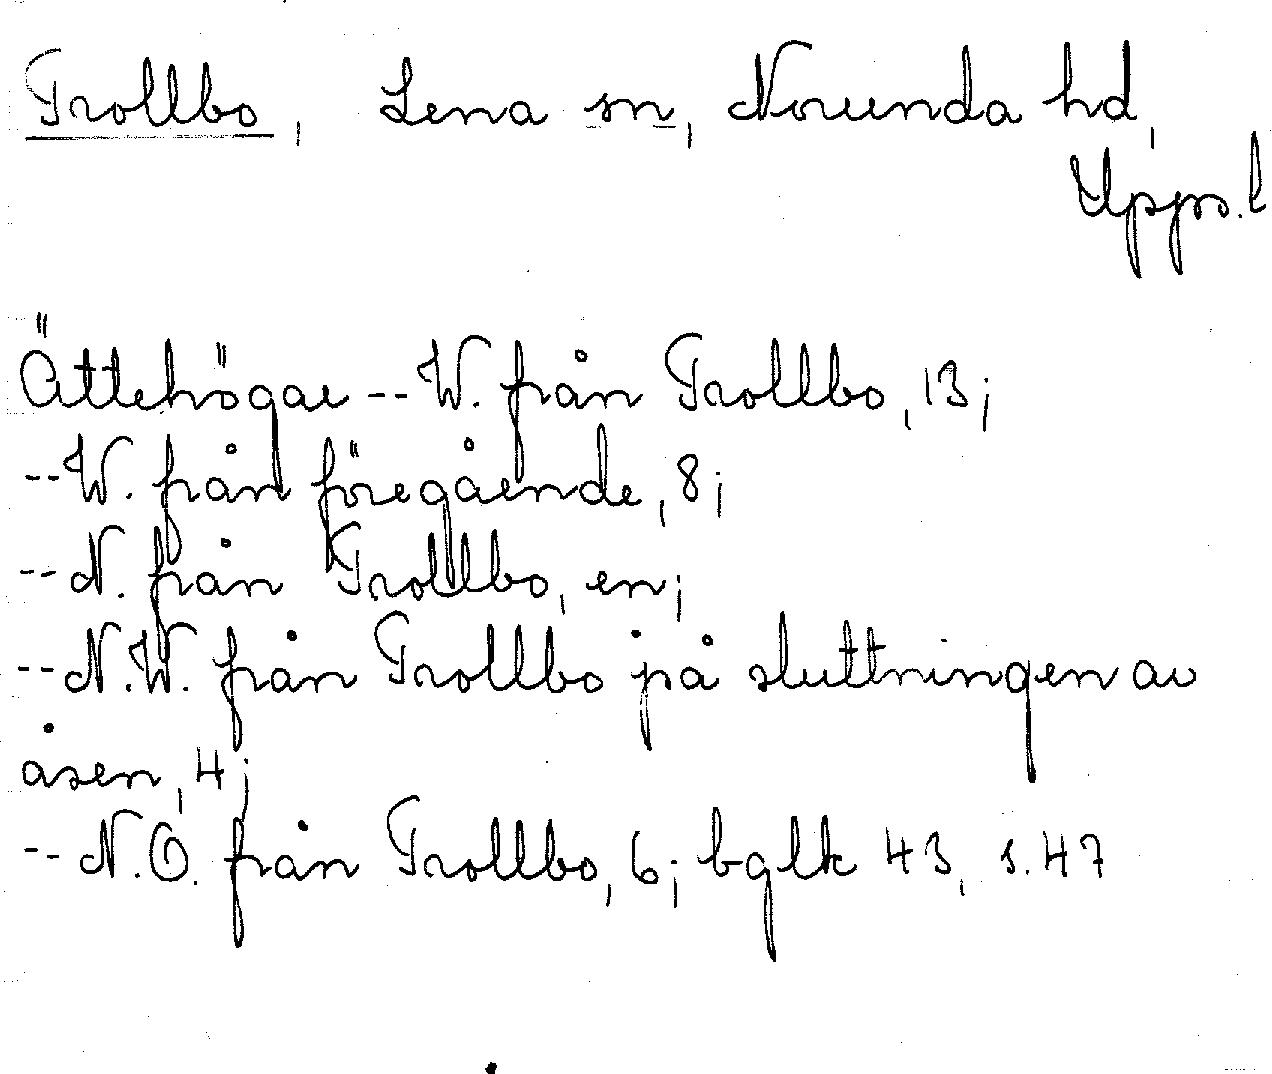 Trollbo, Lena sn, Norunda hd,
Upps. l
Ättehögar -- W. från Trollbo, 13;
-- W. från föregående, 8;
-- N. från Trollbo, en;
-- N.W. från Trollbo på sluttningen av
åsen, 4;
-- N.O. från Trollbo, 6; bglk 43, s. 47